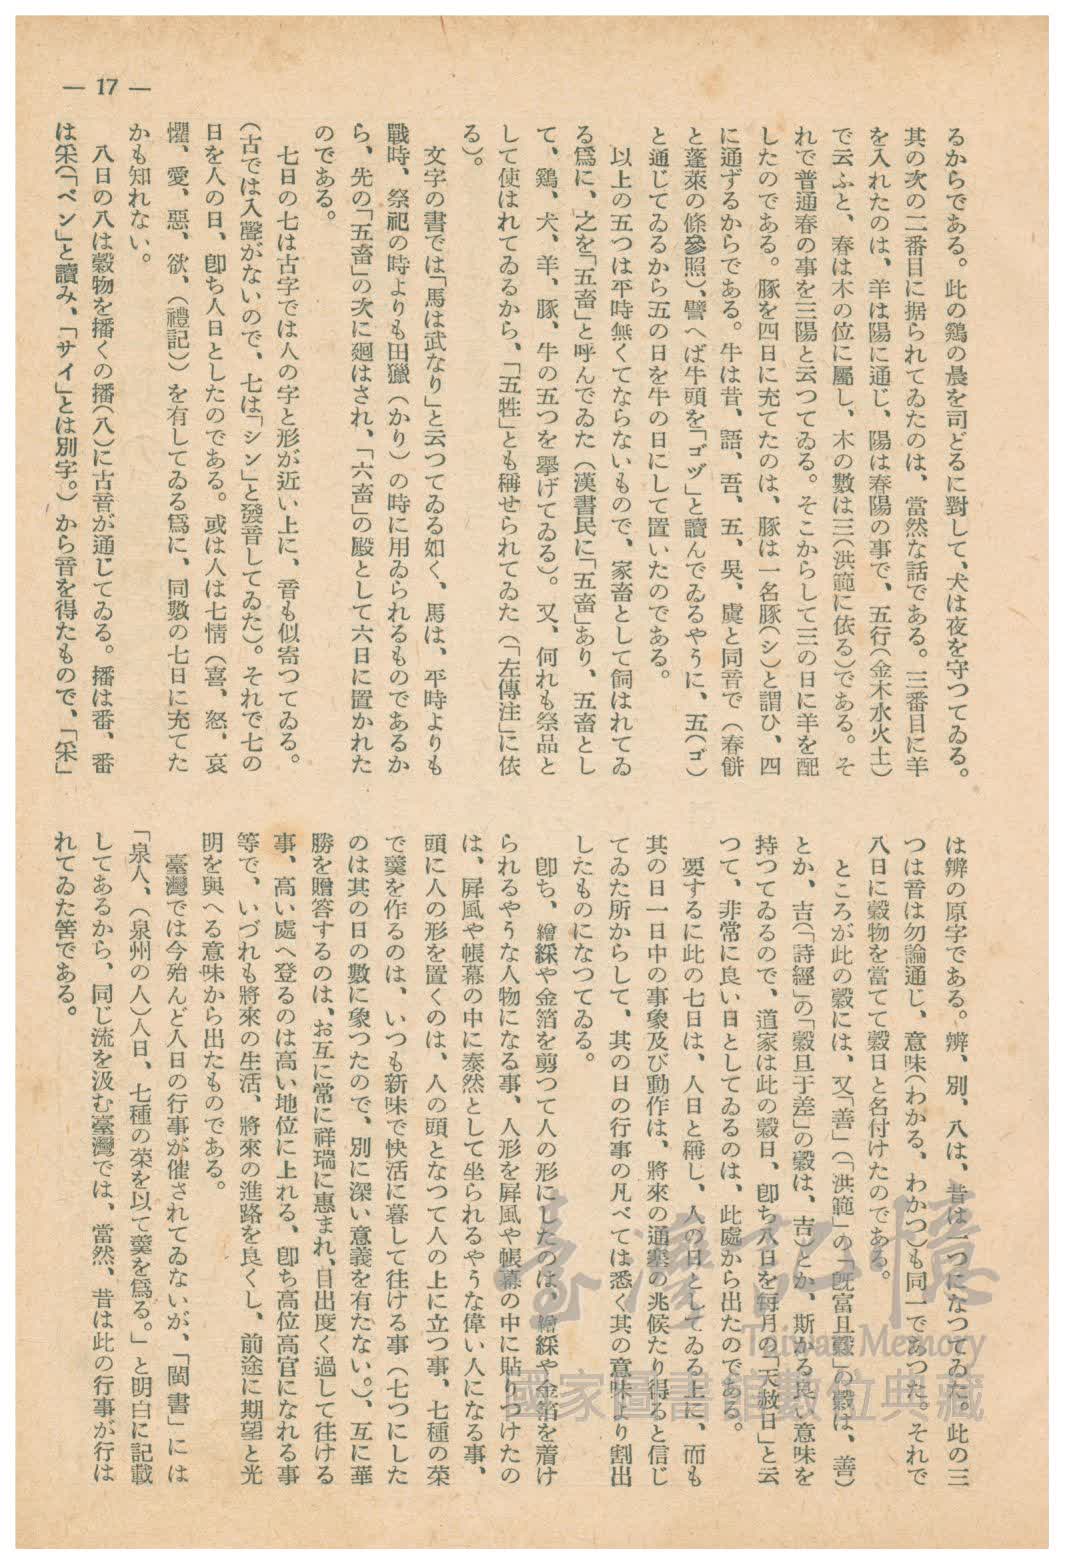 — 17 —
るからである。此の鷄の晨を司どるに對して、犬は夜を守つてゐる。
其の次の二番目に据られてゐたのは、當然な話である。三番目に羊
を入れたのは、羊は陽に通じ、陽は春陽の事で、五行(金木水火土)
で云ふと、春は木の位に屬し、木の數は三(洪範に依る)である。そ
れで普通春の事を三陽と云つてゐる。そこからして三の日に羊を配
したのである。豚を四日に充てたのは、豚は一名豚(シ)と謂ひ、四
に通ずるからである。牛は昔、語、吾、五、吳、虞と同音で(春餅
と蓬萊の條參照)、譬へば牛頭を「ゴヅ」と讀んでゐるやうに、五(ゴ)
と通じてゐるから五の日を牛の日にして置いたのである。
以上の五つは平時無くてならないもので、家畜として飼はれてゐ
る爲に、之を「五畜」と呼んでゐた(漢書民に「五畜」あり、五畜とし
て、鷄、犬、羊、豚、牛の五つを擧げてゐる)。又、何れも祭品と
して使はれてゐるから、「五牲」とも稱せられてゐた(「左傳注」に依
る)。
文字の書では「馬は武なり」と云つてゐる如く、馬は、平時よりも
戰時、祭祀の時よりも田獵(かり)の時に用ゐられるものであるか
ら、先の「五畜」の次に廻はされ、「六畜」の殿として六日に置かれた
のである。
七日の七は古字では人の字と形が近い上に、音も似寄つてゐる。
(古では入聲がないので、七は「シン」と發音してゐた)。それで七の
日を人の日、卽ち人日としたのである。或は人は七情(喜、怒、哀
懼、愛、惡、欲、(禮記)を有してゐる爲に、同數の七日に充てた
かも知れない。
八日の八は穀物を播くの播(八)に古音が通じてゐる。播は番、番
は釆(「ベン」と讀み、「サイ」とは別字。)から音を得たもので、「釆」
は辨の原字である。辨、別、八は、昔は一つになつてゐた。此の三
つは音は勿論通じ、意味(わかる、わかつ)も同一であつた。それで
八日に穀物を當てて穀日と名付けたのである。
ところが此の穀には、又「善」(「洪範」の「旣富且穀」の穀は、善)
とか、吉(「詩經」の「穀旦于差」の穀は、吉)とか、斯かる良い意味を
持つてゐるので、道家は此の穀日、卽ち八日を每月の「天赦日」と云
つて、非常に良い日としてゐるのは、此處から出たのである。
要するに此の七日は、人日と稱し、人の日としてゐる上に、而も
其の日一日中の事象及び動作は、將來の通塞の兆候たり得ると信じ
てゐた所からして、其の日の行事の凡べては悉く其の意味より割出
したものになつてゐる。
卽ち、繪綵や金箔を剪つて人の形にしたのは、繪綵や金箔を着け
られるやうな人物になる事、人形を屛風や帳幕の中に貼りつけたの
は、屛風や帳幕の中に泰然として坐られるやうな偉い人になる事、
頭に人の形を置くのは、人の頭となつて人の上に立つ事、七種の菜
で羹を作るのは、いつも新味で快活に暮して往ける事(七つにした
のは其の日の數に象つたので、別に深い意義を有たない。)、互に華
勝を贈答するのは、お互に常に祥瑞に惠まれ、目出度く過して往ける
事、高い處へ登るのは高い地位に上れる、卽ち高位高官になれる事
等で、いづれも將來の生活、將來の進路を良くし、前途に期望と光
明を與へる意味から出たものである。
臺灣では今殆んど人日の行事が催されてゐないが、「閩書」には
「泉人、(泉州の人)人日、七種の菜を以て羹を爲る。」と明白に記載
してあるから、同じ流を汲む臺灣では、當然、昔は此の行事が行は
れてゐた筈である。
臺灣記憶
Taiwan Memory
國家圖書館數位典藏